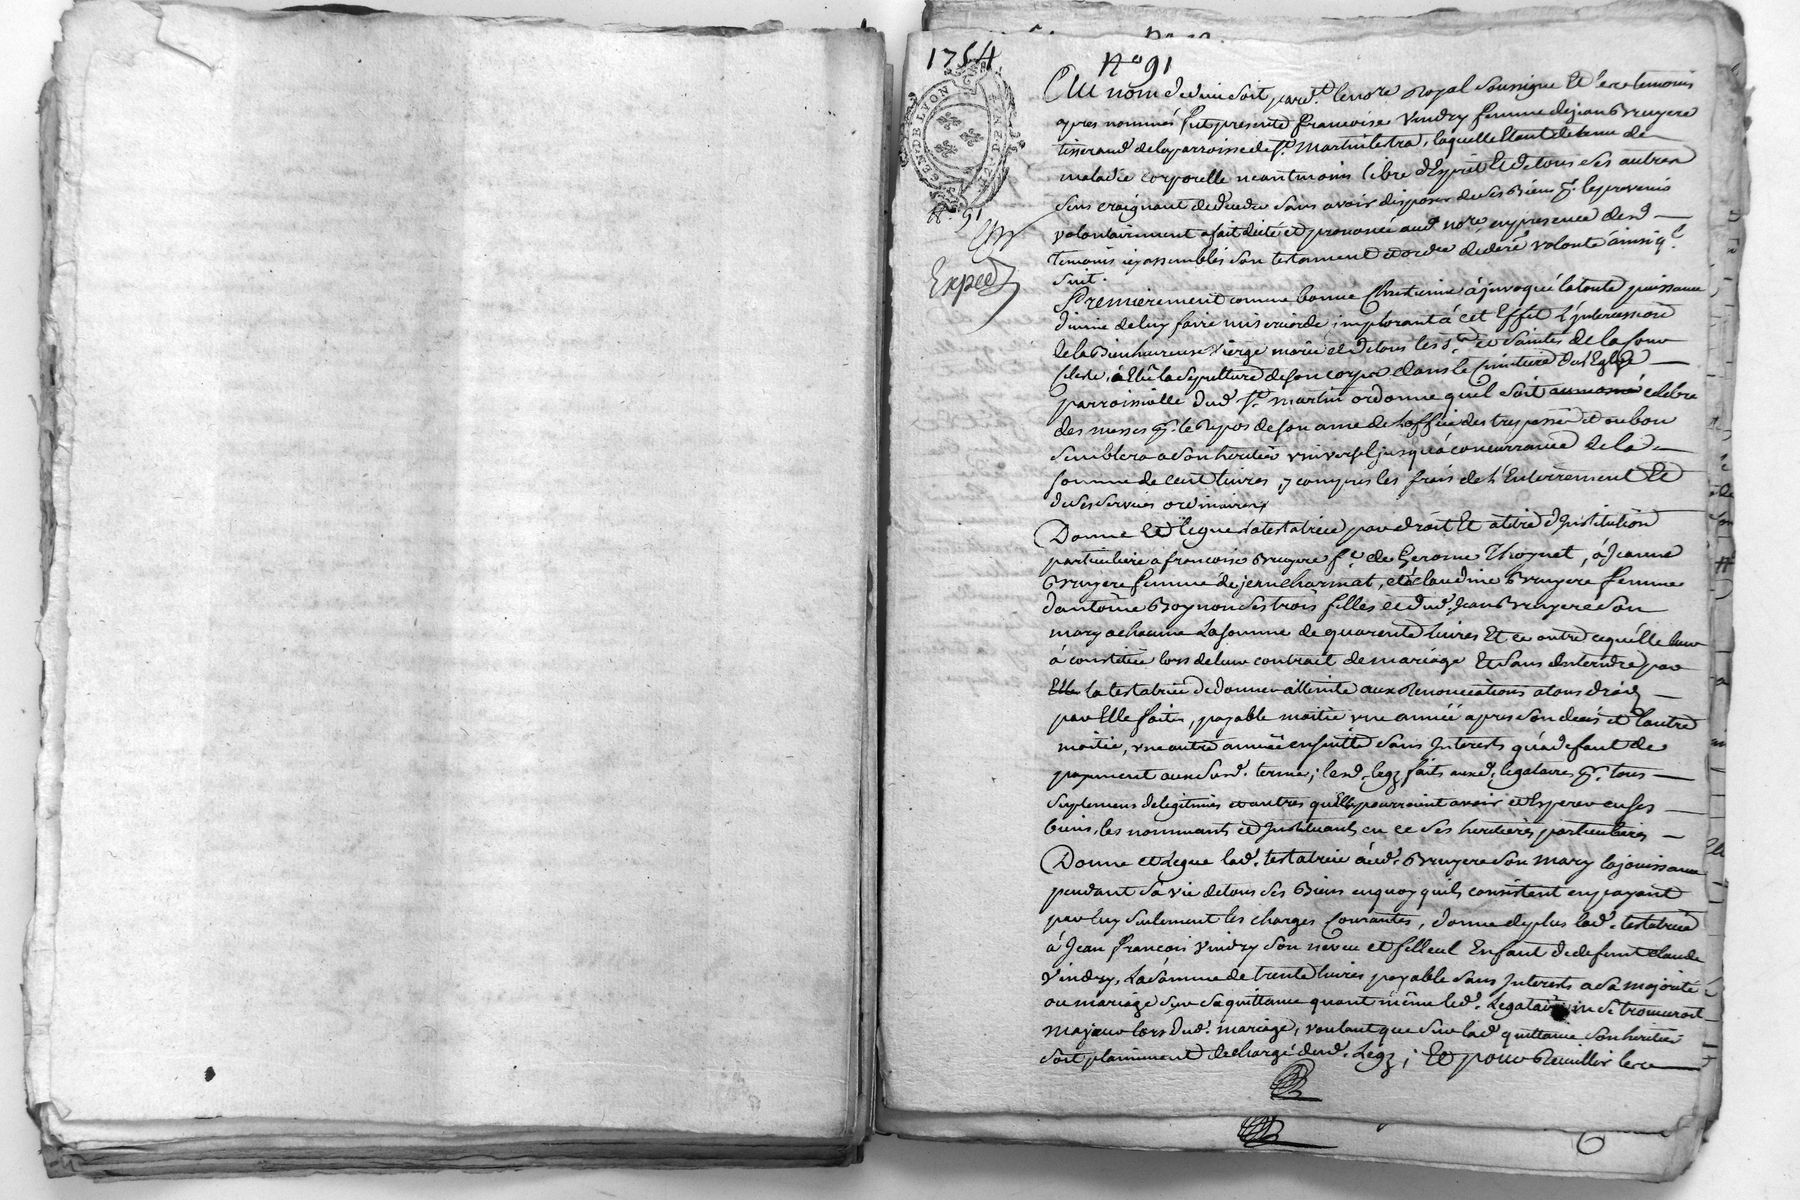 1754
N° 91
GEN. DE LYON
N° 91
Exped
Au nom de dieu soit, pard.t le no.re Royal soussigné Et les temoins
apres nommés fut presente francoise Vindry femme de jean Bruyere
tisserand de la parroisse de St. Martin lestra, laquelle Etant detenue de
maladie corporelle neantmoins libre d'Esprit Et de tous ses autres
sens craignant de deceder sans avoir disposer de ses Biens
volontairement a fait dicté et prononcé aud. no.re, en presence desd.
temoins icy assemblés son testament et ordre de dere. volonté ainsi q.l
suit.
Premierement comme bonne Chretienne à jnvoqué la toute puissance
divine de luy faire misericorde implorant à cet Effet l'jntercession
de la Bienheureuse Vierge marie et de tous les Sts et Saintes de la Cour
Celeste, à Elû la sepulture de son corps dans le Cimetiere de l'Eglise
parroissialle dud. St. Martin ordonne quil soit celebré
des messes p.r le Repos de son ame de l'office des trepassés et ou bon
semblera a son heritier vniversel jusqu'à concurrance de la
somme de cent livres, y compris les frais de l'Enterrement Et
de ses services ordinaires
Donne Et legue la testatrice par droit Et à titre d'Institution
particuliere a francoise Bruyere f.e de Gerome Thoynet, à Jeanne
Bruyere femme de jean charmat, et à claudine Bruyere femme
d'antoine Boynon ses trois filles et dud. Jean Bruyere son
mary a chacune la somme de quarente livres Et ce outre ce qu'elle leur
à constitué lors de leur contrat de mariage Et sans Entendre par
Elle la testatrice de donner atteinte aux Renonciations a tous droits
par Elle faites, payable moitié vne année apres son decés et l'autre
moitié, vne autre année ensuitte sans Interests qu'a defaut de
payement auxdsusd. terme; lesd. legz faits auxd. legataires p.r tous
suplemens de legitimes et autres qu'Elles pourroient avoir et Esperer en ses
biens, les nommants et Instituants en ce ses heritieres particulieres
Donne et Legue lad. testatrice aud. Bruyere son mary la jouissance
pendant sa vie de tous ses Biens en quoy quils consistent en payant
par luy seulement les charges Courantes, donne de plus lad. testatrice
à Jean francois Vindry son neveu et filleul Enfant de defunt claude
Vindry, La somme de trente livres payable sans Interests a sa majorité
ou mariage sur sa quittance quant même led. Legataire ne se trouveroit
majeur lors dud. mariage, voulant que sur lad. quittance son heritier
soit plainement dechargé dud. Legz; Et pour Recuillir le